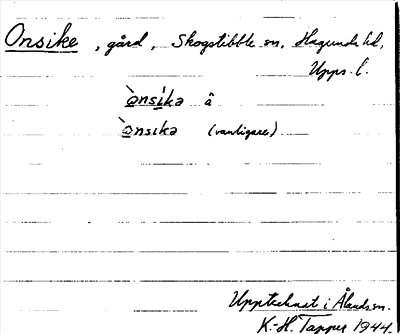 Onsike, gård, Skogstibble sn, Hagunda hd,
Upps. l.
ò̲nsí̲kə â
ò̲nsıkə (vanligare)
Upptecknat i Ålands sn.
K.-H. Tapper 1944.